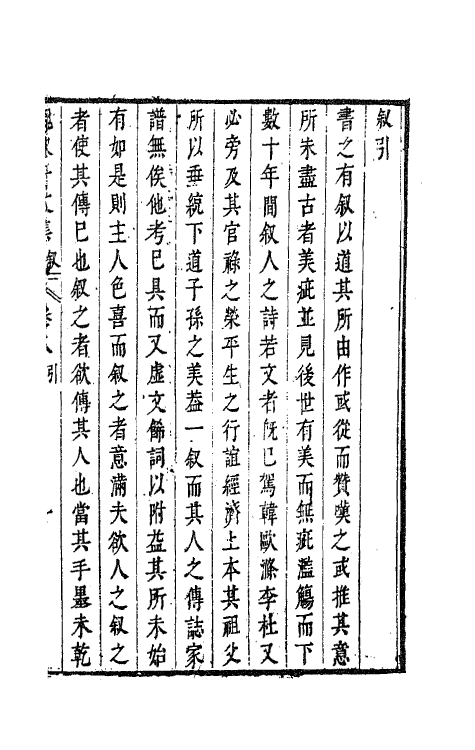 叙引
書之有叙以道其所由作或從而贊嘆之或推其意
所未盡古者美疵並見後世有美而無疵濫觴而下
數十年間叙人之詩若文者旣已駕韓歐滌李杜又
必旁及其官祿之榮平生之行誼經濟上本其祖父
所以垂統下道子孫之美益一叙而其人之傳誌家
譜無俟他考已具而又虛文餙詞以附益其所未始
有如是則主人色喜而叙之者意滿夫欲人之叙之
者使其傳已也叙之者欲傳其人也當其手墨未乾
文集 叙 卷八 引 一